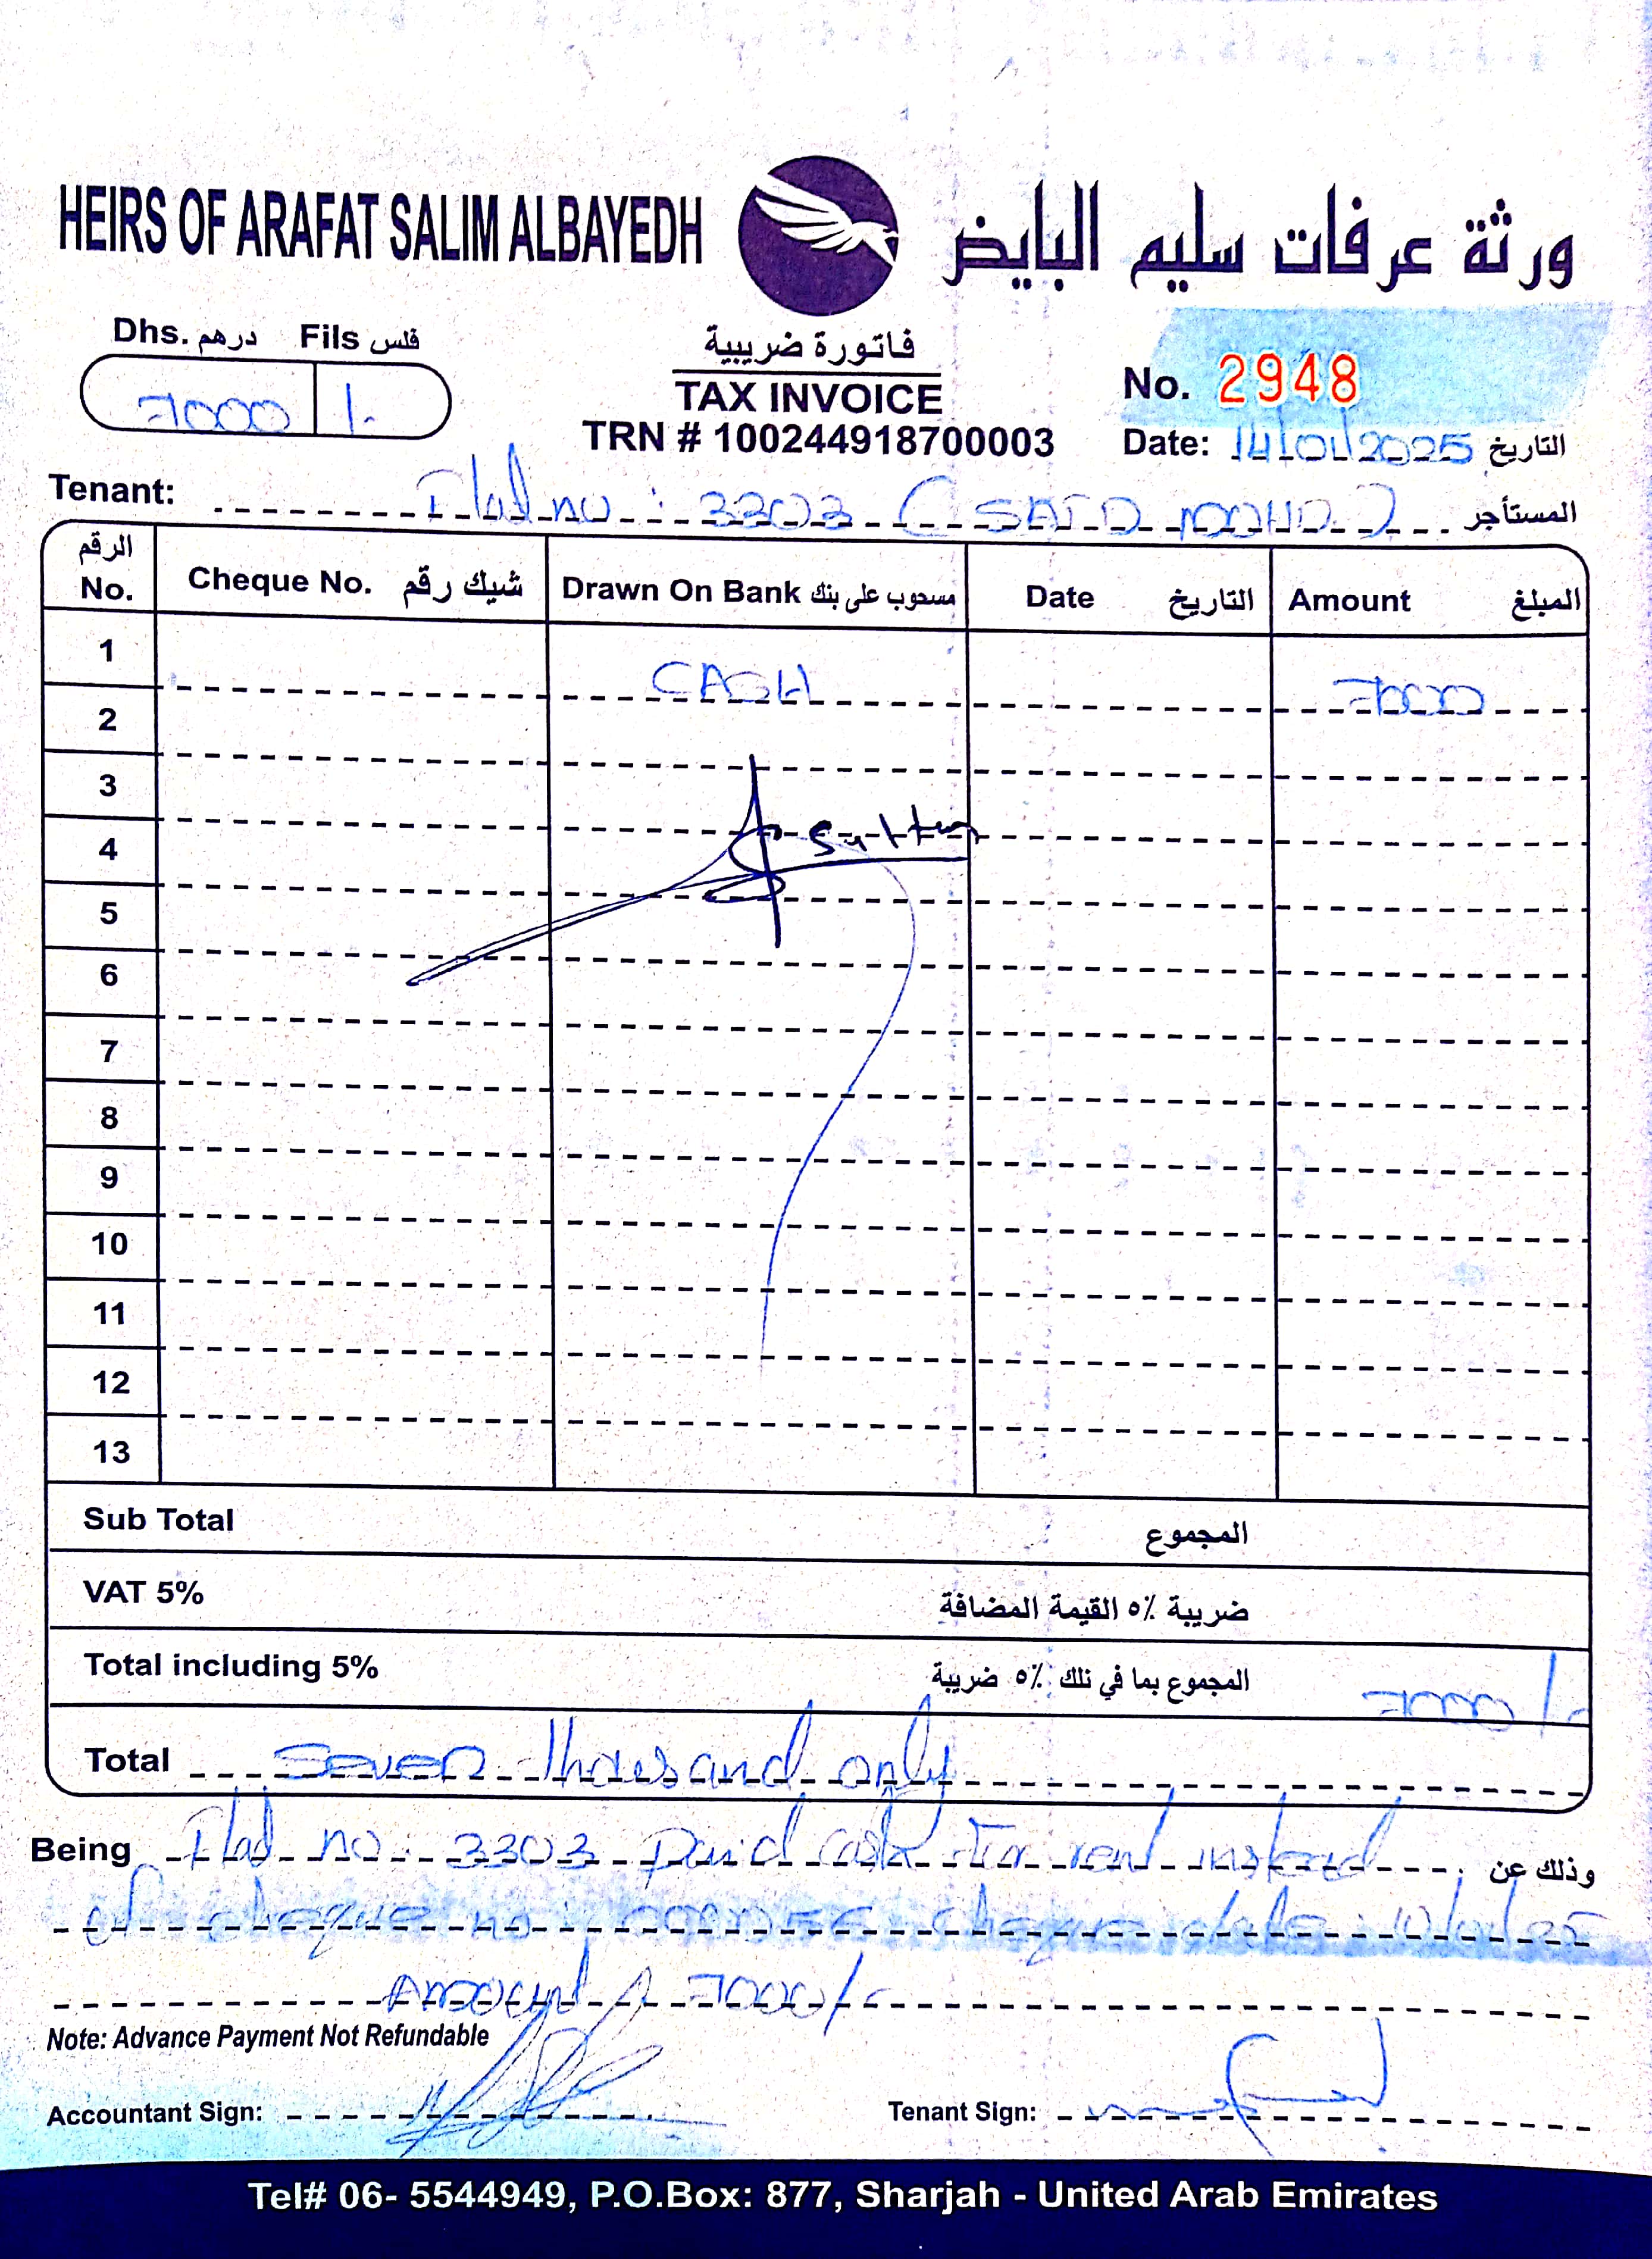 HEIRS OF ARAFAT SALIM ALBAYEDH
ورثة عرفات سليم البايض
Dhs. درهم Fils فلس
7000 /-
فاتورة ضريبية
TAX INVOICE
TRN # 100244918700003
No. 2948
Date: 14/01/2025 التاريخ
Tenant: Flat no : 3303 (SAID MOHD) المستأجر
الرقم No. Cheque No. شيك رقم Drawn On Bank مسحوب على بنك Date التاريخ Amount المبلغ
1 CASH 7000
2
3
4 Sultan
5
6
7
8
9
10
11
12
13
Sub Total المجموع
VAT 5% ضريبة ٥٪ القيمة المضافة
Total including 5% المجموع بما في ذلك ٥٪ ضريبة 7000/-
Total Seven thousand only
Being Flat no : 3303 Paid cash for rent instead وذلك عن
of cheque no : cheque date :
Amount 7000/-
Note: Advance Payment Not Refundable
Accountant Sign: Tenant Sign:
Tel# 06- 5544949, P.O.Box: 877, Sharjah - United Arab Emirates